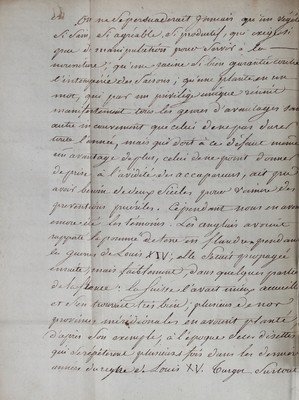 On ne se persuaderait jamais qu'un végétal
si sain, si agréable, si productif, qui exige si
peu de manipulations pour servir à la
nourriture; qu'une racine si bien garantie contre
l'intempérie des saisons; qu'une plante en un
mot, qui par un privilège unique réunit
manifestement tous les genres d'avantages sans
autre inconvénient que celui de ne pas durer
toute l'année, mais qui doit à ce défaut même
un avantage de plus, celui de ne point donner
de prise à l'avidité des accapareurs, ait pu
avoir besoin de deux siècles pour vaincre des
préventions puériles. Cependant nous en avons
encore été les témoins. Les anglais avoient
rapporté la pomme de terre en flandre pendant
la guerre de Louis XIV; elle s'étoit propagée
ensuite mais faiblement, dans quelques parties
de la france: la suisse l'avait mieux accueillie
et s'en trouvoit très bien; plusieurs de nos
provinces méridionales en avoient planté
d'après son exemple, à l'époque de ces disettes
qui se répétèrent plusieurs fois dans les dernières
années du règne de Louis XV. Turgot surtout